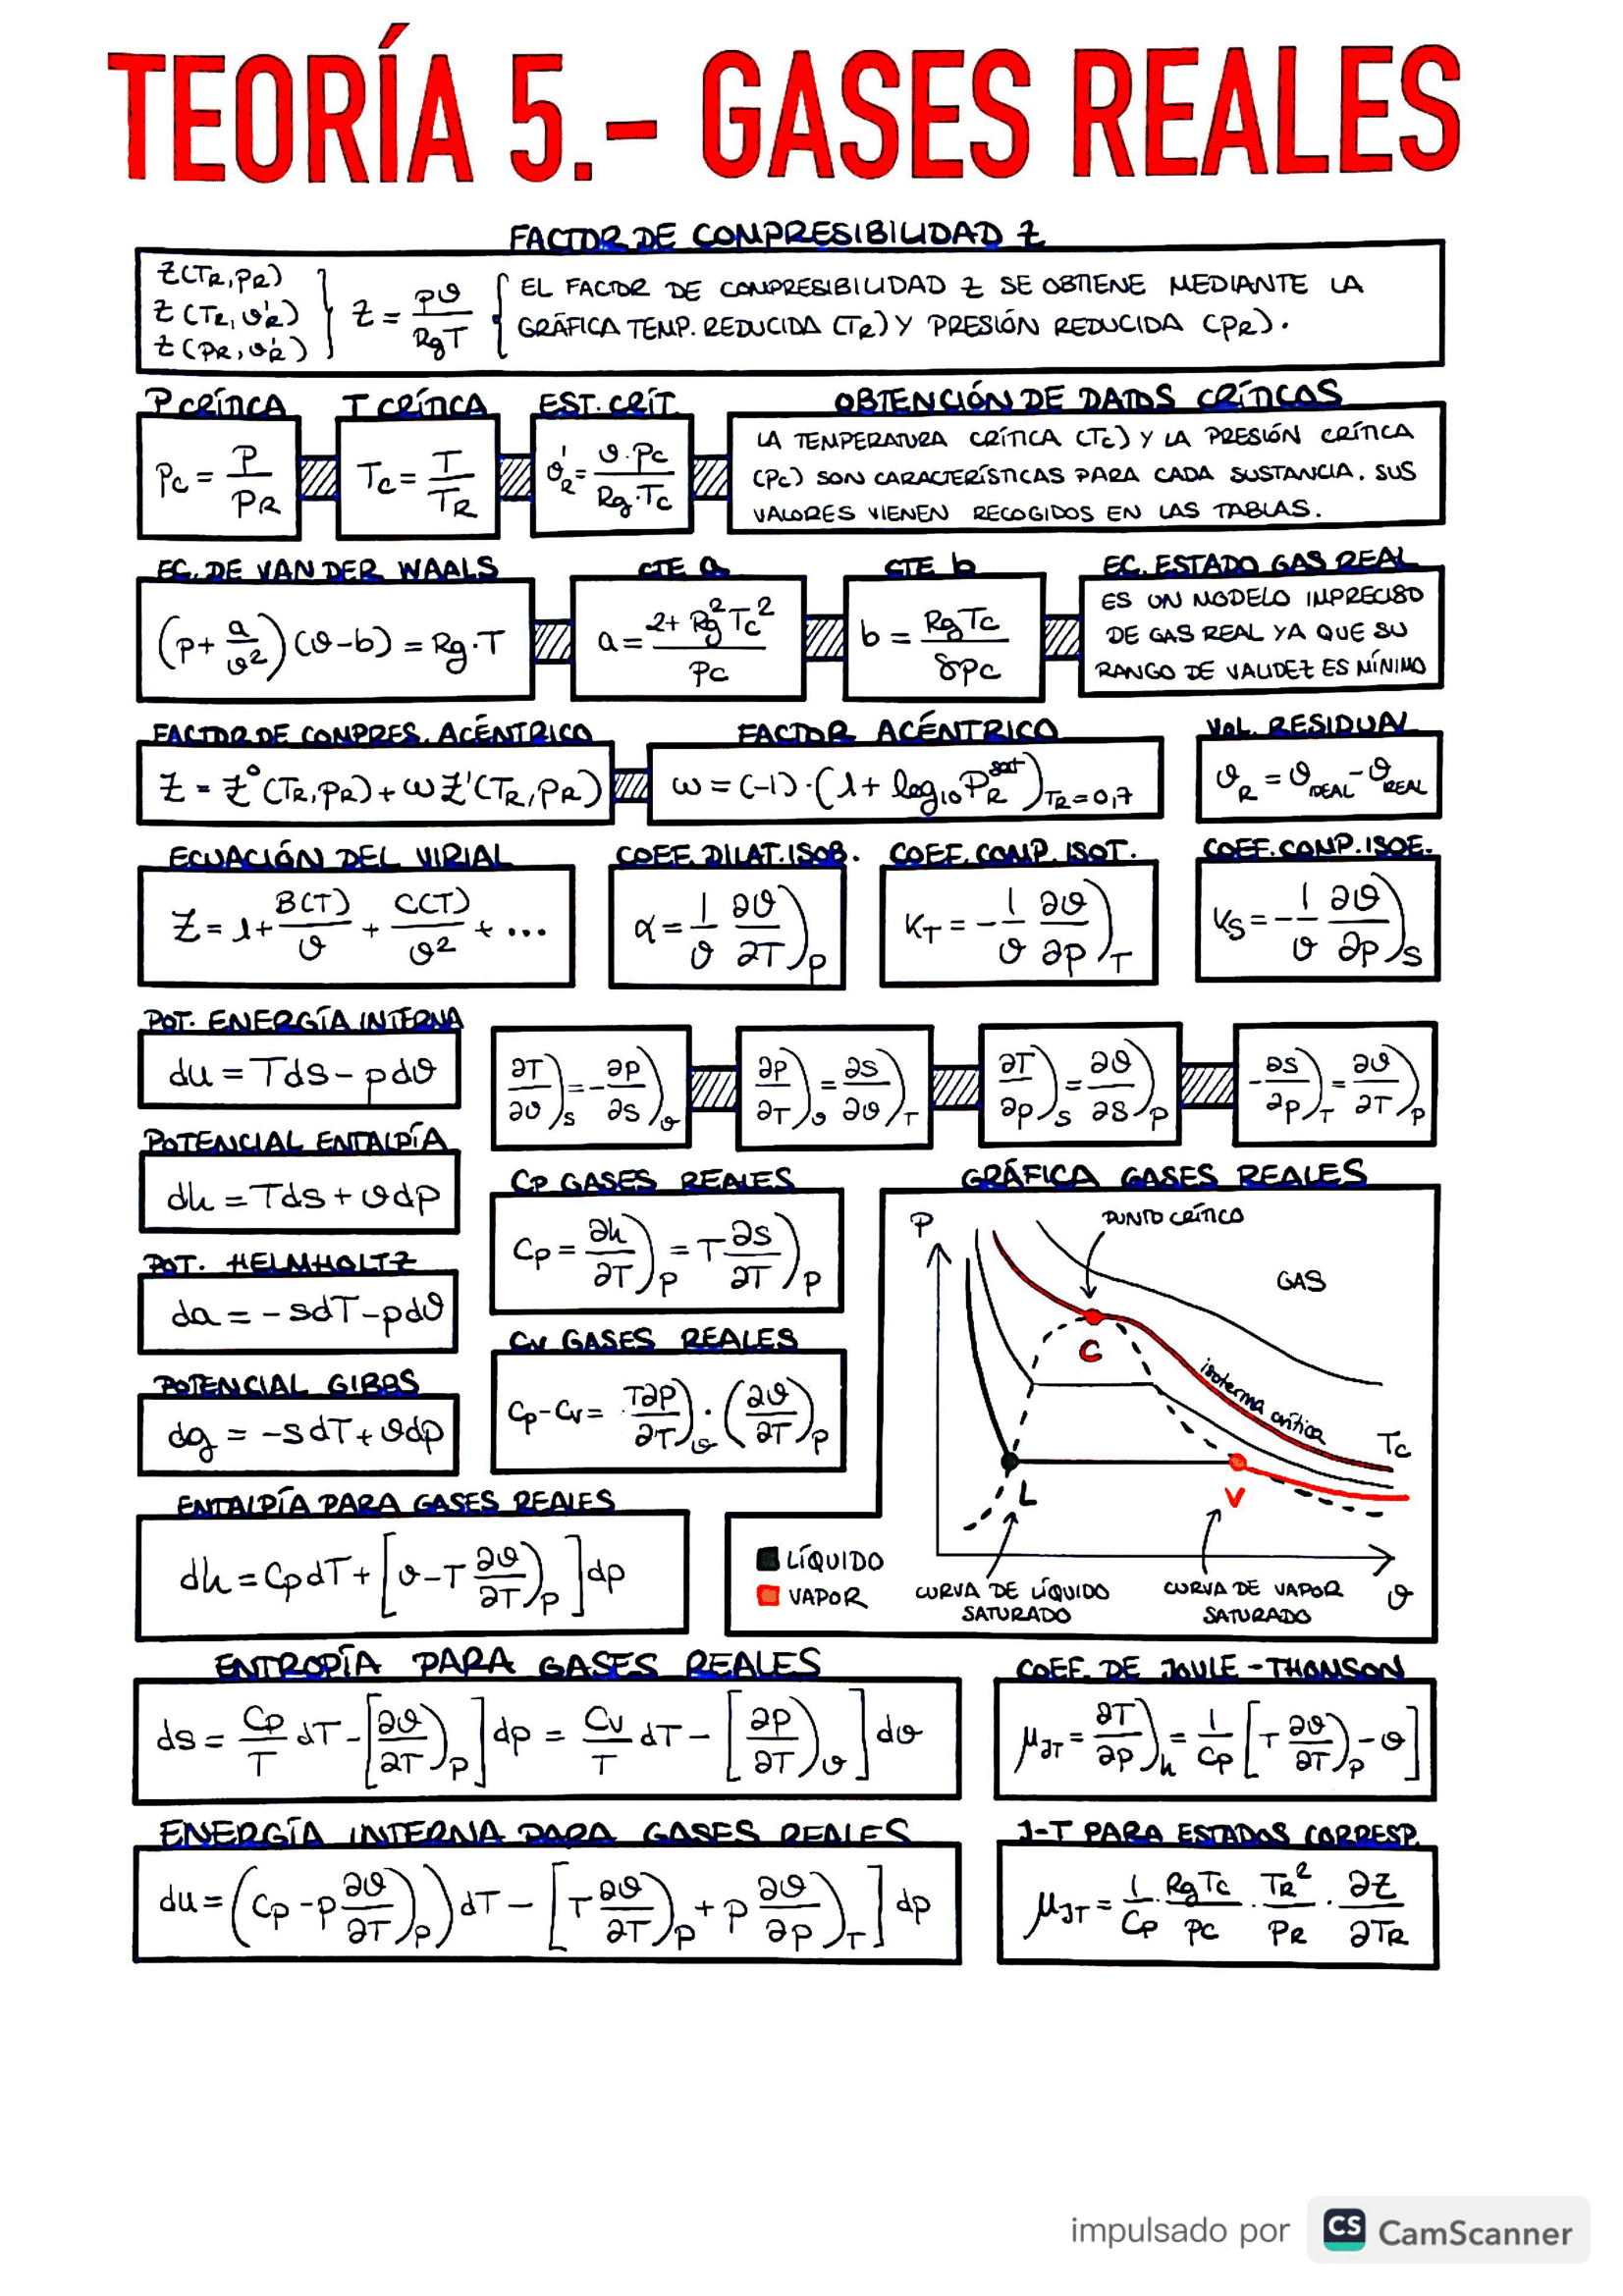 TEORÍA 5.- GASES REALES
FACTOR DE COMPRESIBILIDAD Z
Z(TR,PR)
Z(TR,ϑ'R)
Z(PR,ϑ'R)
Z = pϑ / RgT
EL FACTOR DE COMPRESIBILIDAD Z SE OBTIENE MEDIANTE LA
GRÁFICA TEMP. REDUCIDA (TR) Y PRESIÓN REDUCIDA (PR).
P CRÍTICA
Pc = P / PR
T CRÍTICA
Tc = T / TR
EST. CRÍT.
ϑ'R = ϑ·Pc / Rg·Tc
OBTENCIÓN DE DATOS CRÍTICOS
LA TEMPERATURA CRÍTICA (Tc) Y LA PRESIÓN CRÍTICA
(Pc) SON CARACTERÍSTICAS PARA CADA SUSTANCIA. SUS
VALORES VIENEN RECOGIDOS EN LAS TABLAS.
EC. DE VAN DER WAALS
(p + a/ϑ²)(ϑ-b) = Rg·T
CTE a
a = 2+ Rg² Tc² / Pc
CTE b
b = RgTc / 8Pc
EC. ESTADO GAS REAL
ES UN MODELO IMPRECISO
DE GAS REAL YA QUE SU
RANGO DE VALIDEZ ES MÍNIMO
FACTOR DE COMPRES. ACÉNTRICO
Z = Z°(TR,PR) + ωZ'(TR,PR)
FACTOR ACÉNTRICO
ω = (-1)·(1 + log10 PR^sat)TR=0,7
VOL. RESIDUAL
ϑR = ϑIDEAL - ϑREAL
ECUACIÓN DEL VIRIAL
Z = 1 + B(T)/ϑ + C(T)/ϑ² + ...
COEF. DILAT. ISOB.
α = 1/ϑ ∂ϑ/∂T)p
COEF. COMP. ISOT.
KT = - 1/ϑ ∂ϑ/∂p)T
COEF. COMP. ISOE.
KS = - 1/ϑ ∂ϑ/∂p)S
POT. ENERGÍA INTERNA
du = Tds - pdϑ
∂T/∂ϑ)s = - ∂p/∂s)ϑ
∂p/∂T)ϑ = ∂s/∂ϑ)T
∂T/∂p)s = ∂ϑ/∂s)p
- ∂s/∂p)T = ∂ϑ/∂T)p
POTENCIAL ENTALPÍA
dh = Tds + ϑdp
POT. HELMHOLTZ
da = - sdT - pdϑ
POTENCIAL GIBBS
dg = - sdT + ϑdp
CP GASES REALES
Cp = ∂h/∂T)p = T ∂s/∂T)p
CV GASES REALES
Cp - Cv = T∂p/∂T)ϑ · (∂ϑ/∂T)p
GRÁFICA GASES REALES
P
PUNTO CRÍTICO
GAS
C
isoterma crítica
Tc
L
V
LÍQUIDO
VAPOR
CURVA DE LÍQUIDO
SATURADO
CURVA DE VAPOR
SATURADO
ϑ
ENTALPÍA PARA GASES REALES
dh = CpdT + [ϑ - T ∂ϑ/∂T)p] dp
ENTROPÍA PARA GASES REALES
ds = Cp/T dT - [∂ϑ/∂T)p] dp = Cv/T dT - [∂p/∂T)ϑ] dϑ
COEF. DE JOULE - THOMSON
μJT = ∂T/∂p)h = 1/Cp [T ∂ϑ/∂T)p - ϑ]
ENERGÍA INTERNA PARA GASES REALES
du = (Cp - p ∂ϑ/∂T)p) dT - [T ∂ϑ/∂T)p + p ∂ϑ/∂p)T] dp
J-T PARA ESTADOS CORRESP.
μJT = 1/Cp · RgTc/Pc · TR²/PR · ∂Z/∂TR
impulsado por CS CamScanner